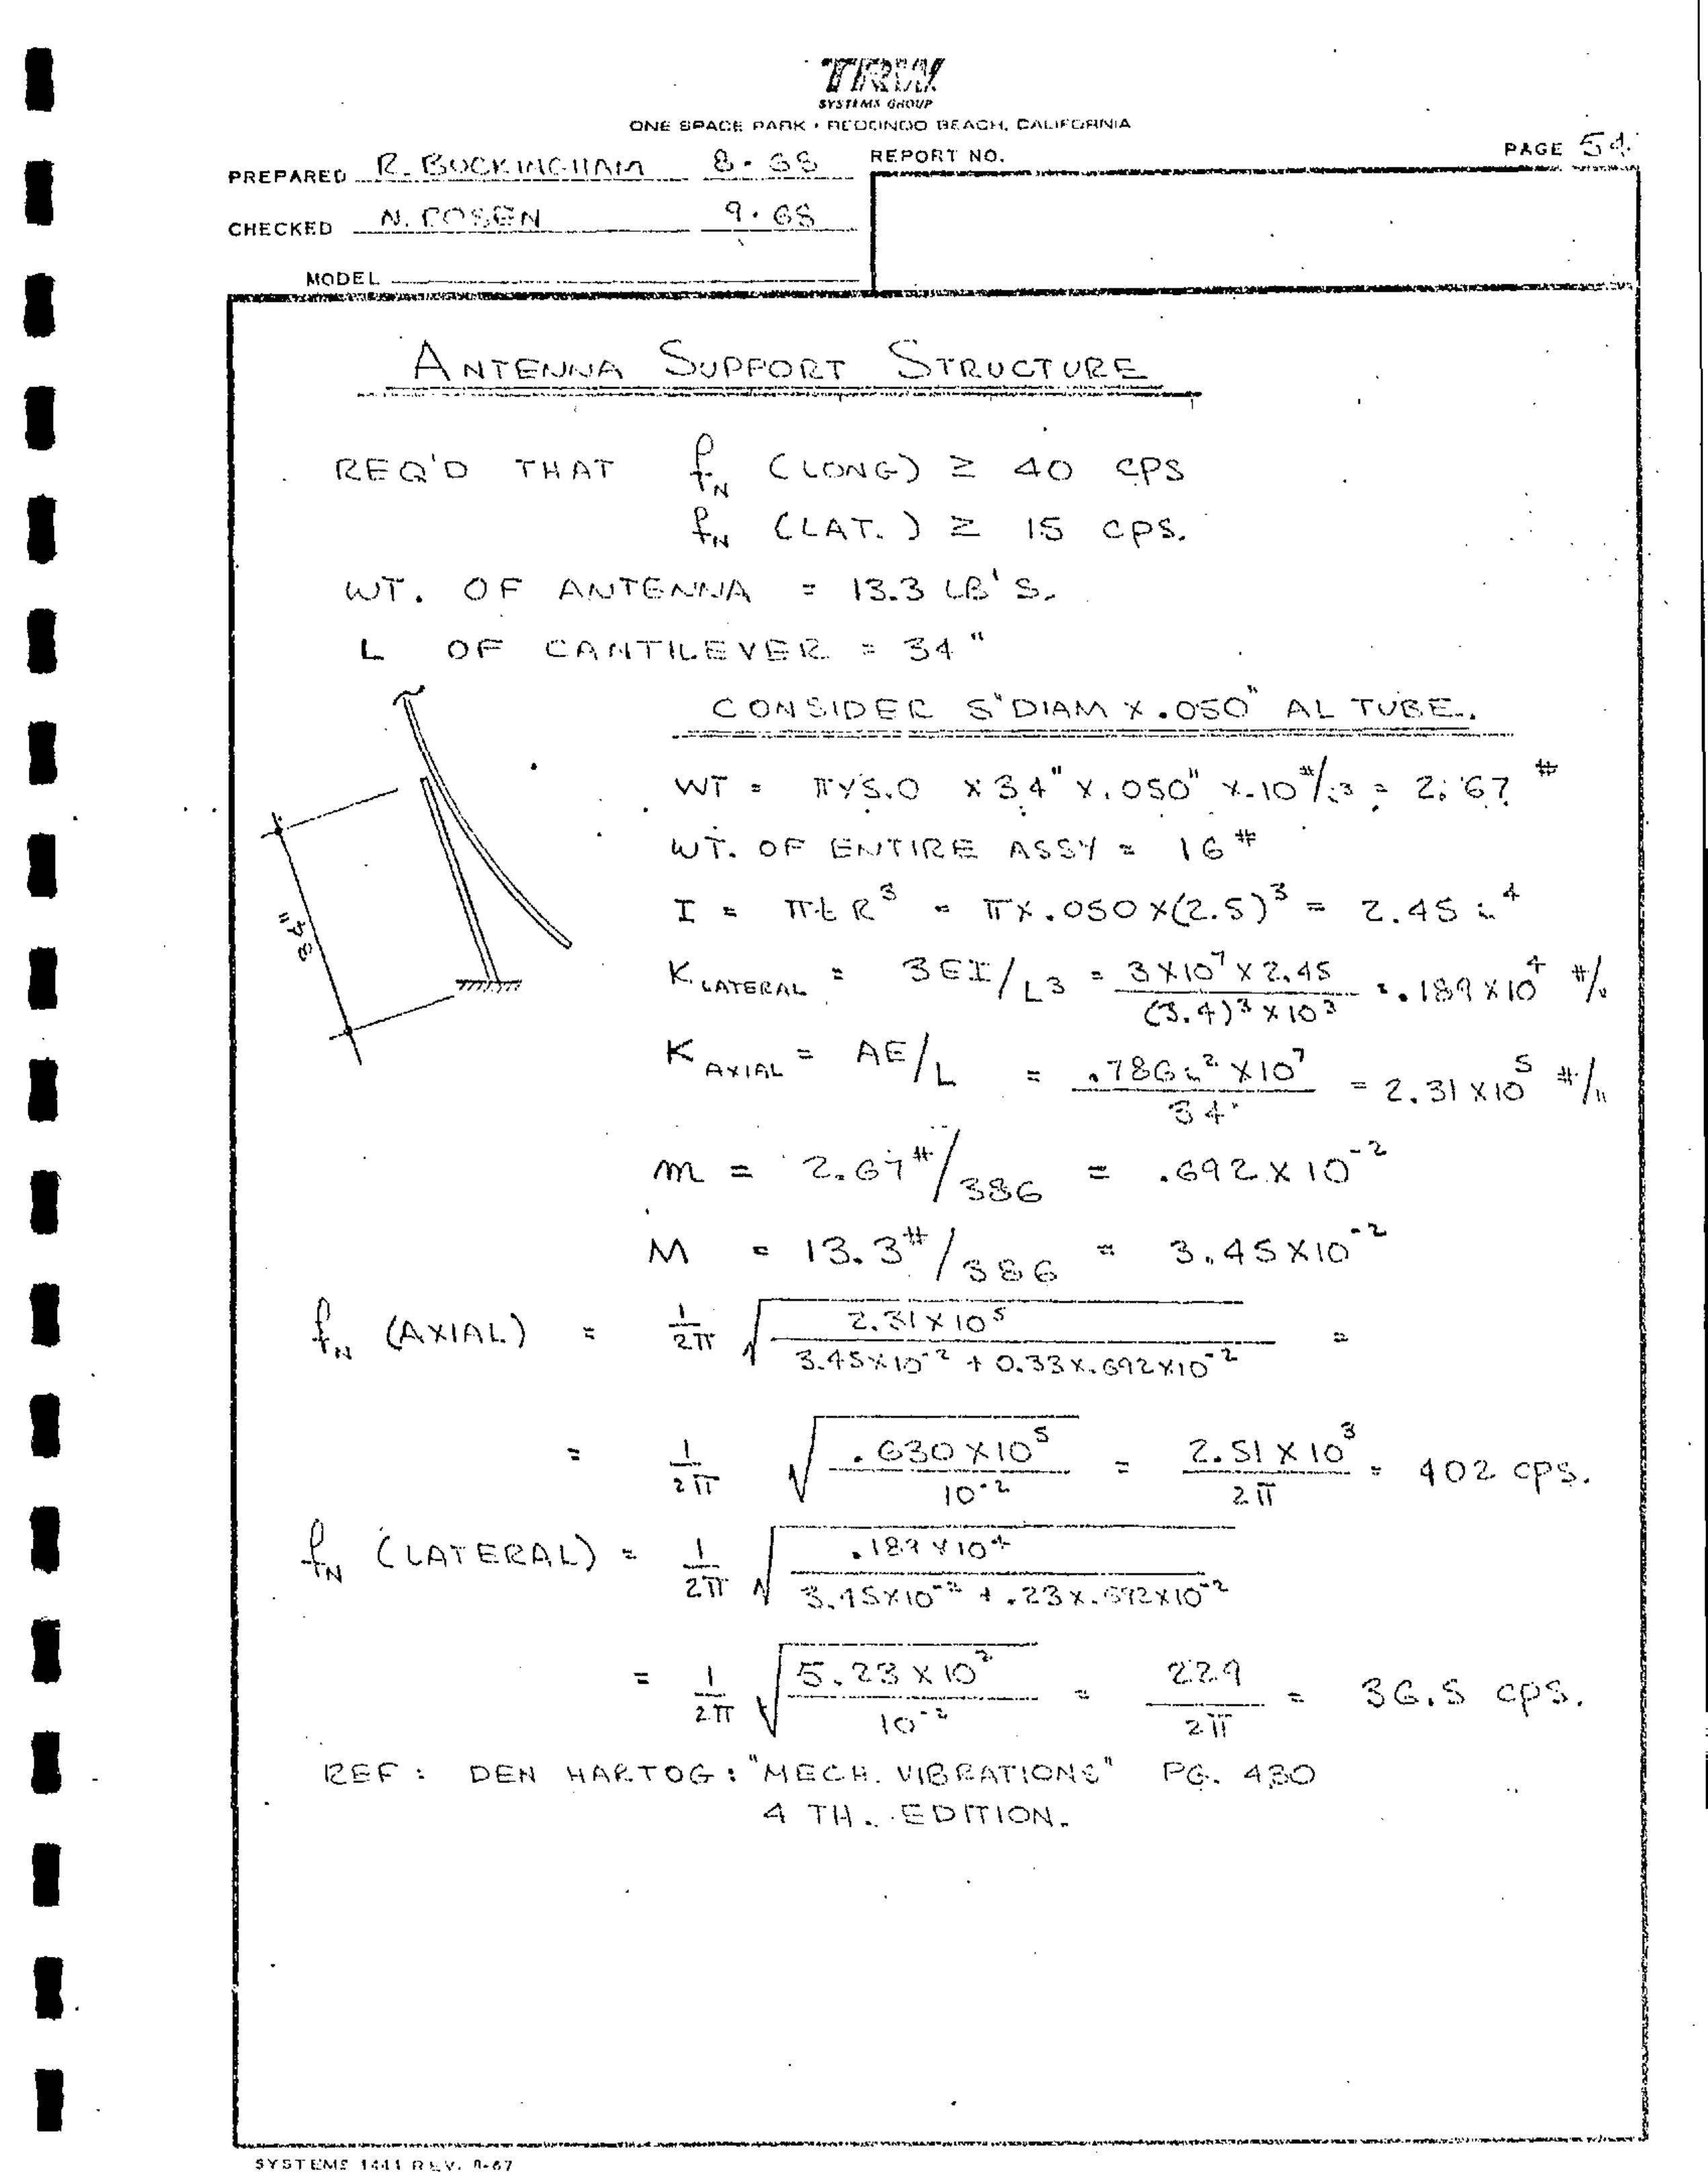 TRW
SYSTEMS GROUP
ONE SPACE PARK • REDONDO BEACH, CALIFORNIA
PREPARED R. BUCKINGHAM 8-68 REPORT NO. PAGE 54
CHECKED N. ROSEN 9-68
MODEL
ANTENNA SUPPORT STRUCTURE
REQ'D THAT fN (LONG) ≥ 40 cps
fN (LAT.) ≥ 15 cps.
WT. OF ANTENNA = 13.3 LB'S.
L OF CANTILEVER = 34"
CONSIDER 5"DIAM x .050" AL TUBE.
34"
WT = π x 5.0 x 34" x .050" x .10 #/in3 = 2.67 #
WT. OF ENTIRE ASSY = 16 #
I = π t R³ = π x .050 x (2.5)³ = 2.45 in⁴
K LATERAL = 3EI/L3 = 3 x 10⁷ x 2.45 / (3.4)³ x 10³ = .189 x 10⁴ #/"
K AXIAL = AE/L = .786 in² x 10⁷ / 34" = 2.31 x 10⁵ #/"
m = 2.67# / 386 = .692 x 10⁻²
M = 13.3# / 386 = 3.45 x 10⁻²
fN (AXIAL) = 1/2π √ 2.31 x 10⁵ / 3.45 x 10⁻² + 0.33 x .692 x 10⁻² =
= 1/2π √ .630 x 10⁵ / 10⁻² = 2.51 x 10³ / 2π = 402 cps.
fN (LATERAL) = 1/2π √ .189 x 10⁴ / 3.45 x 10⁻² + .23 x .692 x 10⁻²
= 1/2π √ 5.23 x 10² / 10⁻² = 229 / 2π = 36.5 cps.
REF: DEN HARTOG: "MECH. VIBRATIONS" PG. 430
4 TH. EDITION.
SYSTEMS 1441 REV. 8-67